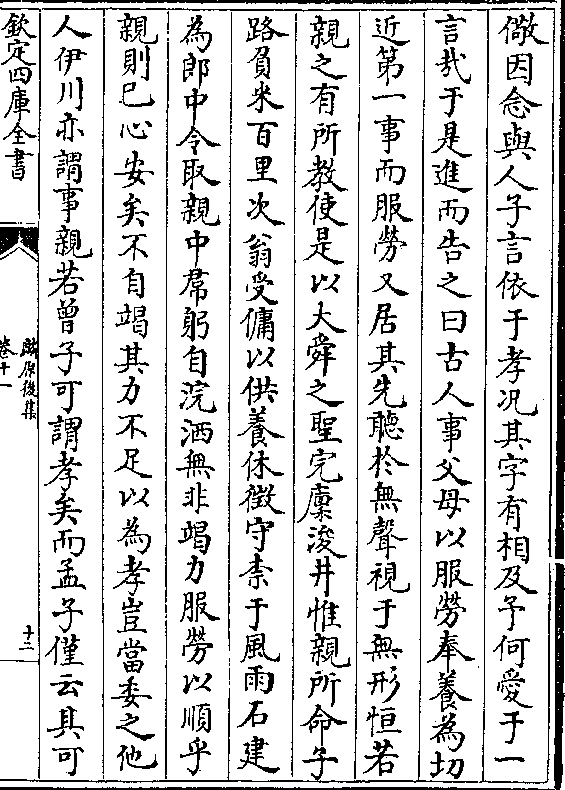 儆因念與人子言依于孝况其字有相及予何愛于一
言㢤于是進而告之曰古人事父母以服勞奉養為切
近第一事而服勞又居其先聽於無聲視于無形恒若
親之有所教使是以大舜之聖完廩浚井惟親所命子
路負米百里次翁受傭以供養休徵守柰于風雨石建
為郎中令取親中帬躬自浣洒無非竭力服勞以順乎
親則已心安矣不自竭其力不足以為孝豈當委之他
人伊川亦謂事親若曾子可謂孝矣而孟子僅云其可
欽定四庫全書
後集
卷十一
十二